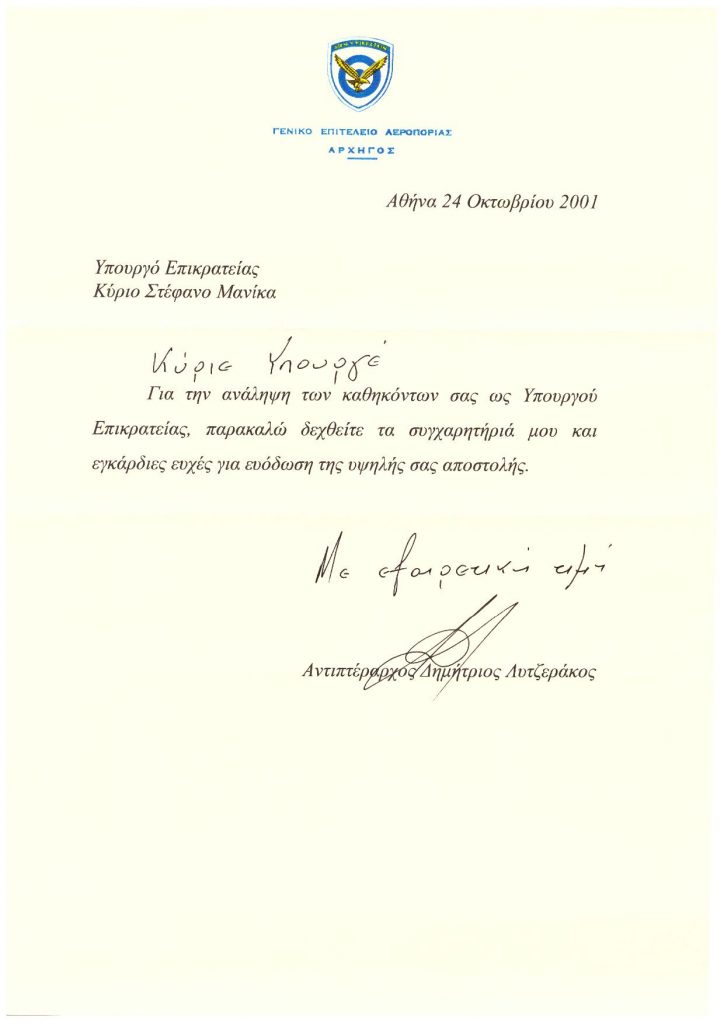 ΓΕΝΙΚΟ ΕΠΙΤΕΛΕΙΟ ΑΕΡΟΠΟΡΙΑΣ
ΑΡΧΗΓΟΣ
Αθήνα 24 Οκτωβρίου 2001
Υπουργό Επικρατείας
Κύριο Στέφανο Μανίκα
Κύριε Υπουργέ
Για την ανάληψη των καθηκόντων σας ως Υπουργού
Επικρατείας, παρακαλώ δεχθείτε τα συγχαρητήριά μου και
εγκάρδιες ευχές για ευόδωση της υψηλής σας αποστολής.
Με εξαιρετική τιμή
Αντιπτέραρχος Δημήτριος Λυτζεράκος